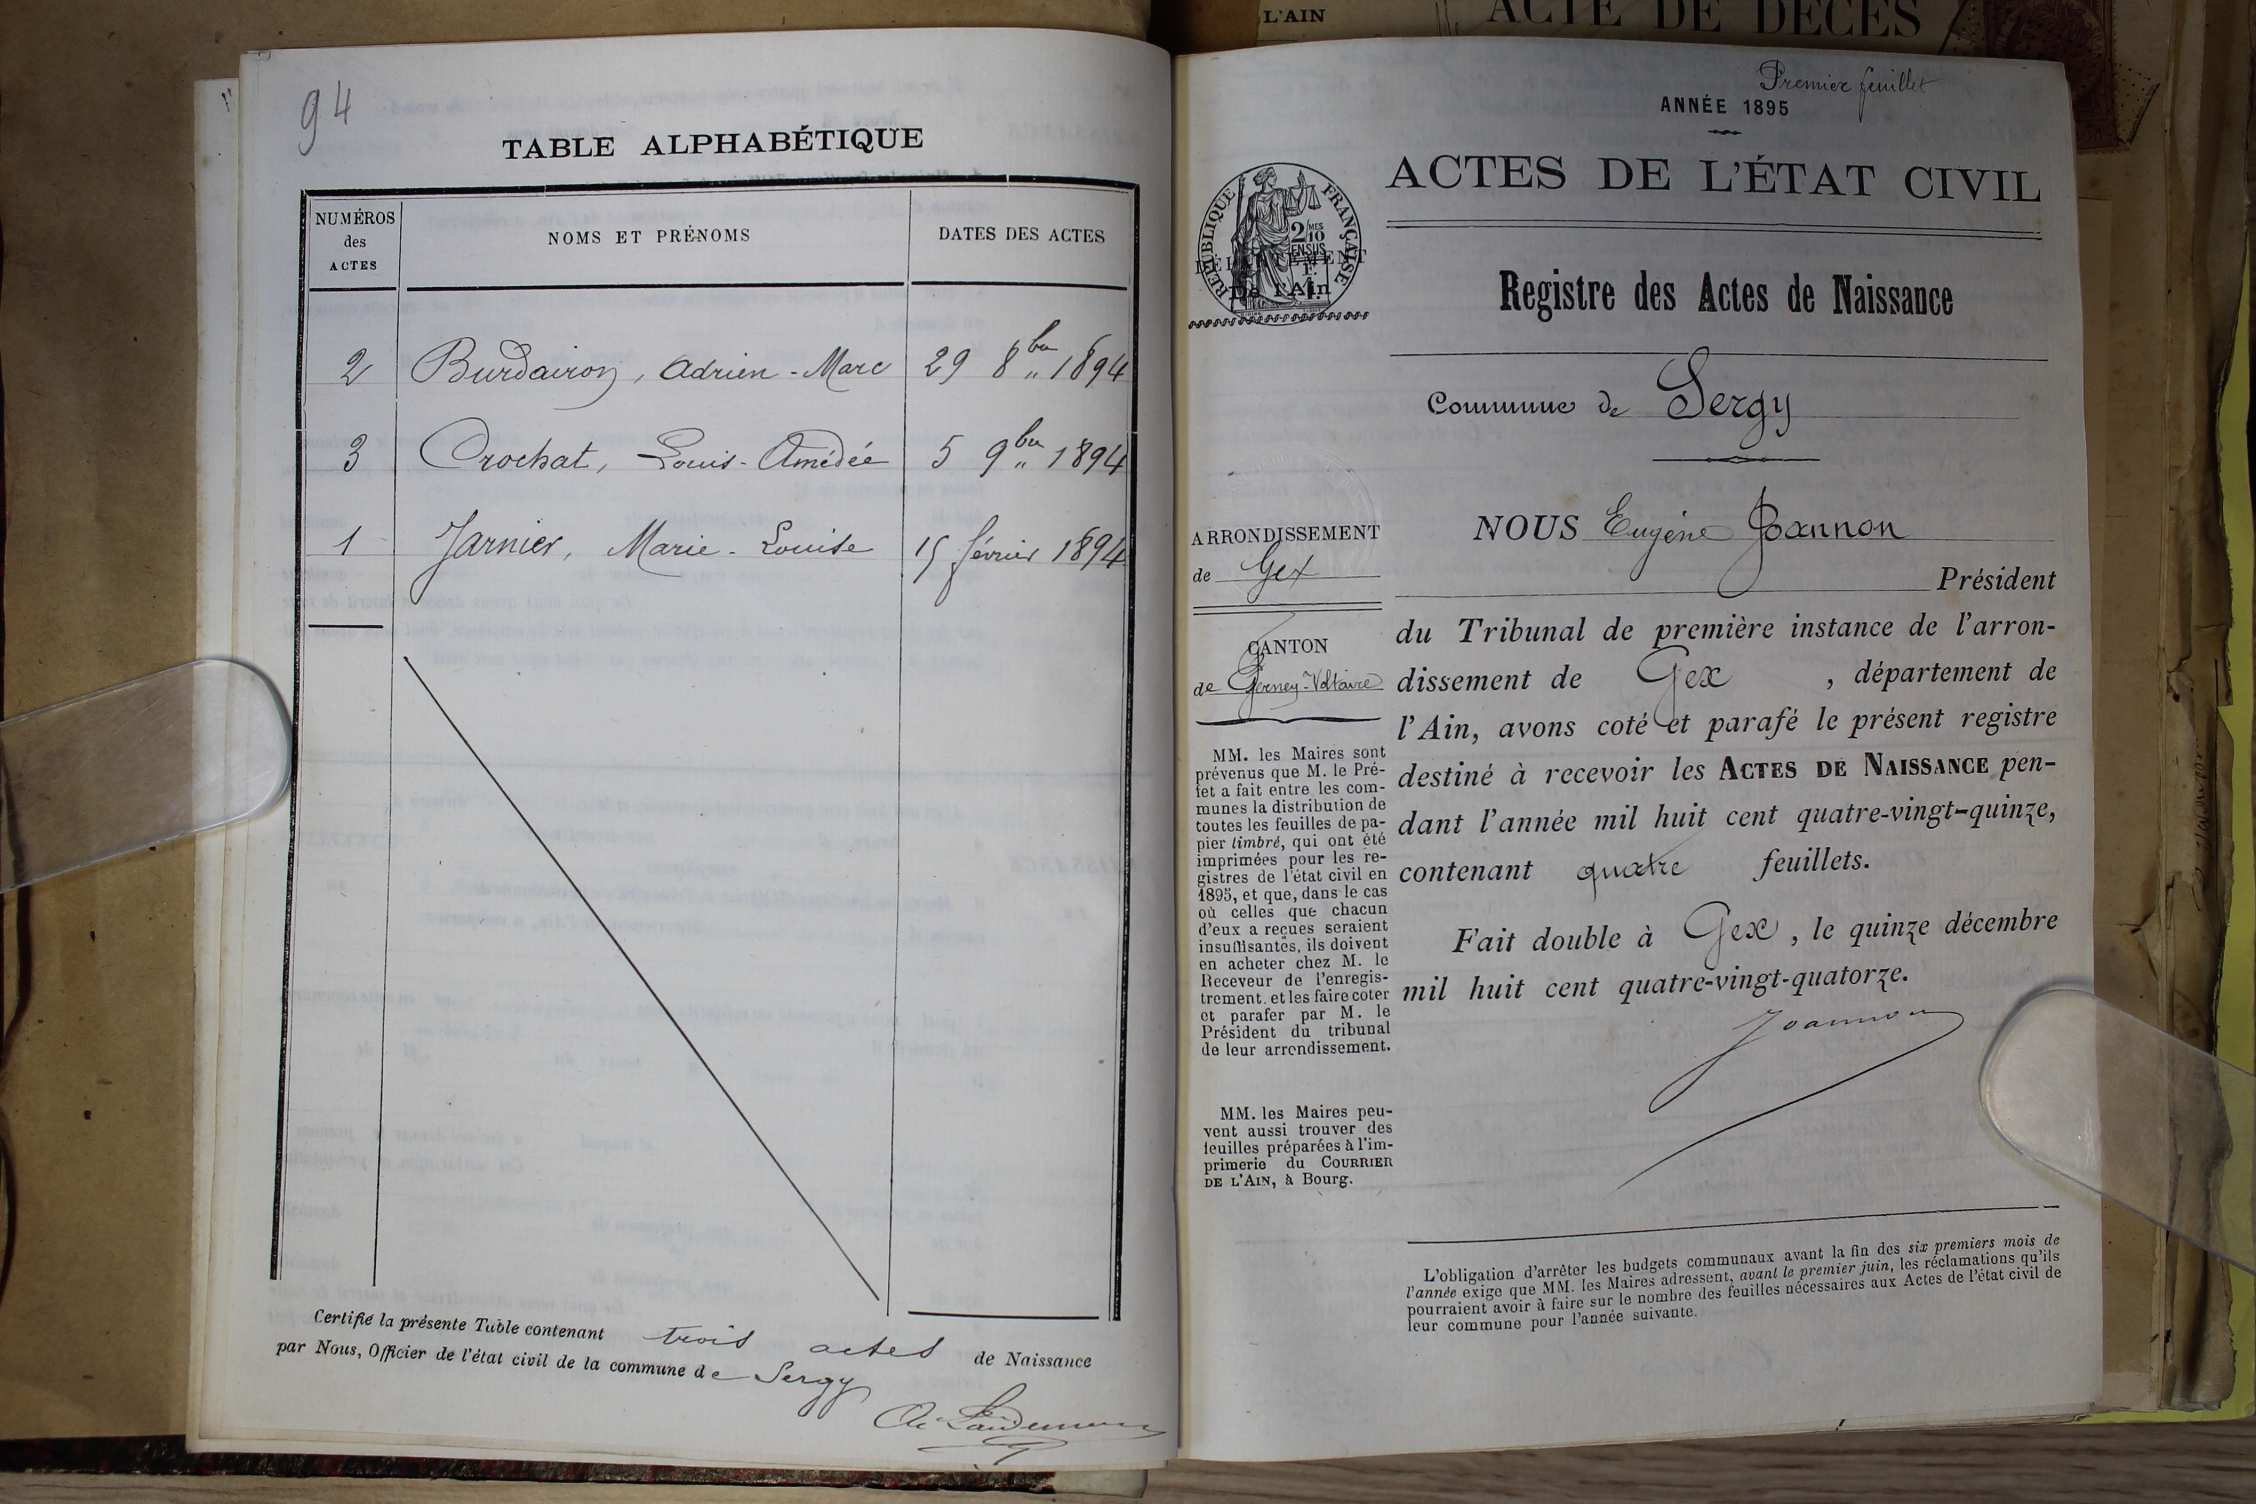 94
TABLE ALPHABÉTIQUE
NUMÉROS
des
ACTES
NOMS ET PRÉNOMS
DATES DES ACTES
2 Burdairon, Adrien-Marc 29 8bre 1894
3 Crochat, Louis-Amédée 5 9bre 1894
1 Jarnier, Marie-Louise 15 février 1894
Certifié la présente Table contenant trois actes de Naissance
par Nous, Officier de l'état civil de la commune de Sergy
L'AIN
ACTE DE DÉCÈS
Premier feuillet
ANNÉE 1895
ACTES DE L'ÉTAT CIVIL
RÉPUBLIQUE FRANÇAISE
2 MES
10
EN SUS
DÉPARTEMENT
De l'Ain
Registre des Actes de Naissance
Commune de Sergy
ARRONDISSEMENT
de Gex
CANTON
de Ferney-Voltaire
MM. les Maires sont
prévenus que M. le Pré-
fet a fait entre les com-
munes la distribution de
toutes les feuilles de pa-
pier timbré, qui ont été
imprimées pour les re-
gistres de l'état civil en
1895, et que, dans le cas
où celles que chacun
d'eux a reçues seraient
insuffisantes, ils doivent
en acheter chez M. le
Receveur de l'enregis-
trement. et les faire coter
et parafer par M. le
Président du tribunal
de leur arrondissement.
MM. les Maires peu-
vent aussi trouver des
feuilles préparées à l'im-
primerie du COURRIER
DE L'AIN, à Bourg.
NOUS Eugène Joannon
Président
du Tribunal de première instance de l'arron-
dissement de Gex, département de
l'Ain, avons coté et parafé le présent registre
destiné à recevoir les ACTES DE NAISSANCE pen-
dant l'année mil huit cent quatre-vingt-quinze,
contenant quatre feuillets.
Fait double à Gex, le quinze décembre
mil huit cent quatre-vingt-quatorze.
Joannon
L'obligation d'arrêter les budgets communaux avant la fin des six premiers mois de
l'année exige que MM. les Maires adressent, avant le premier juin, les réclamations qu'ils
pourraient avoir à faire sur le nombre des feuilles nécessaires aux Actes de l'état civil de
leur commune pour l'année suivante.